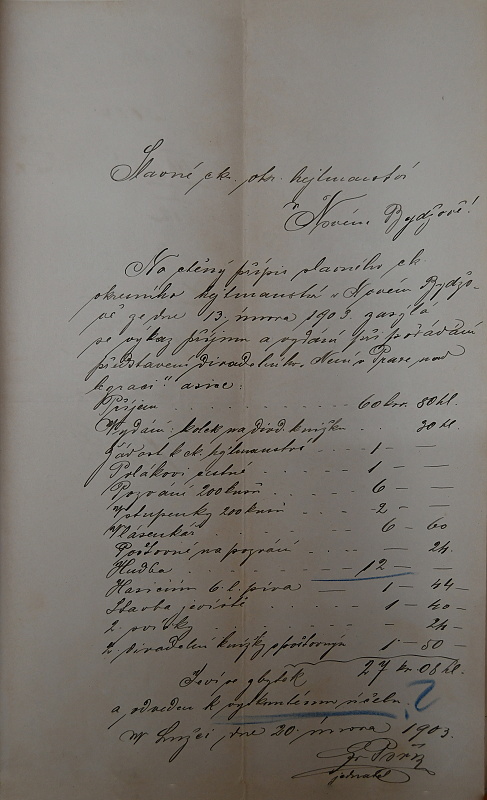 Slavné ck. okr. hejtmanství
v Novém Bydžově!
Na ctěný přípis slavného ck.
okresního hejtmanství v Novém Bydžo-
vě ze dne 13. února 1903 zasýlá
se výkaz příjmu a vydání při pořádání
představení divadelního "Není v Praze nad
legraci" a sice:
Příjem 60 kor. 80 hl.
Vydání: kolek na divad. knížku 30 hl.
Žádost k ck. hejtmanství 1 -
Polákovi 1 - -
Pozvání 200 kusů 6 - -
Vstupenky 200 kusů 2 - -
Vlásenkář 6 - 60
Poštovné na pozvání - 24.
Hudba 12 - -
Hasičům 6 l. piva 1 - 44 -
Stavba jeviště 1 - 40 -
2 svíčky - 24 -
2. divadelní knížky s poštovným 1 - 80 -
Jeví se zbytek 27 kr. 08 hl.
a odveden k účelu. ?
V dne 20. února 1903.
jednatel